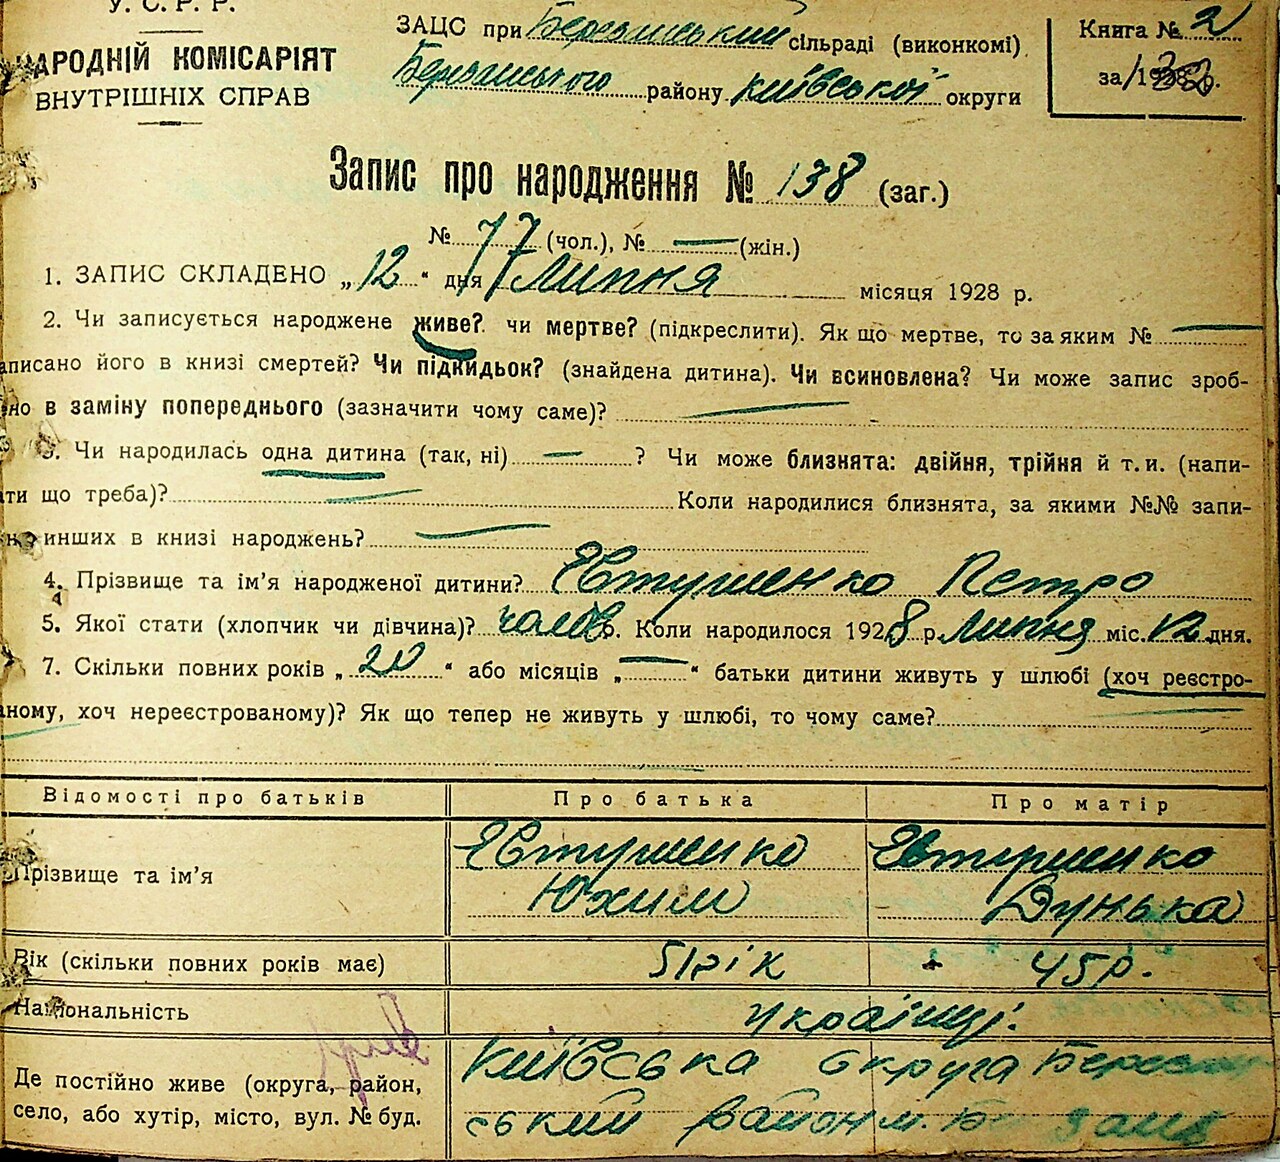 У. С. Р. Р.
НАРОДНІЙ КОМІСАРІЯТ
ВНУТРІШНІХ СПРАВ
ЗАЦС при Березанський сільраді (виконкомі)
Березанського району Київської округи
Книга № 2
за р.
Запис про народження № 138 (заг.)
№ 77 (чол.), № — (жін.)
1. ЗАПИС СКЛАДЕНО „12“ дня 17 Липня місяця 1928 р.
2. Чи записується народжене живе? чи мертве? (підкреслити). Як що мертве, то за яким № —
аписано його в книзі смертей? Чи підкидьок? (знайдена дитина). Чи всиновлена? Чи може запис зроб-
но в заміну попереднього (зазначити чому саме)? —
3. Чи народилась одна дитина (так, ні) — ? Чи може близнята: двійня, трійня й т. и. (напи-
ти що треба)? — Коли народилися близнята, за якими №№ запи-
инших в книзі народжень? —
4. Прізвище та ім’я народженої дитини? Євтушенко Петро
5. Якої стати (хлопчик чи дівчина)? чолов. Коли народилося 1928 р. Липня міс. 12 дня.
7. Скільки повних років „20“ або місяців „—“ батьки дитини живуть у шлюбі (хоч реєстро-
ному, хоч нереєстрованому)? Як що тепер не живуть у шлюбі, то чому саме?
Відомості про батьків Про батька Про матір
Прізвище та ім’я Євтушенко Юхим Євтушенко Дунька
Вік (скільки повних років має) 51 рік 45 р.
Національність українці.
Де постійно живе (округа, район, Київська округа
село, або хутір, місто, вул. № буд. ський район м.